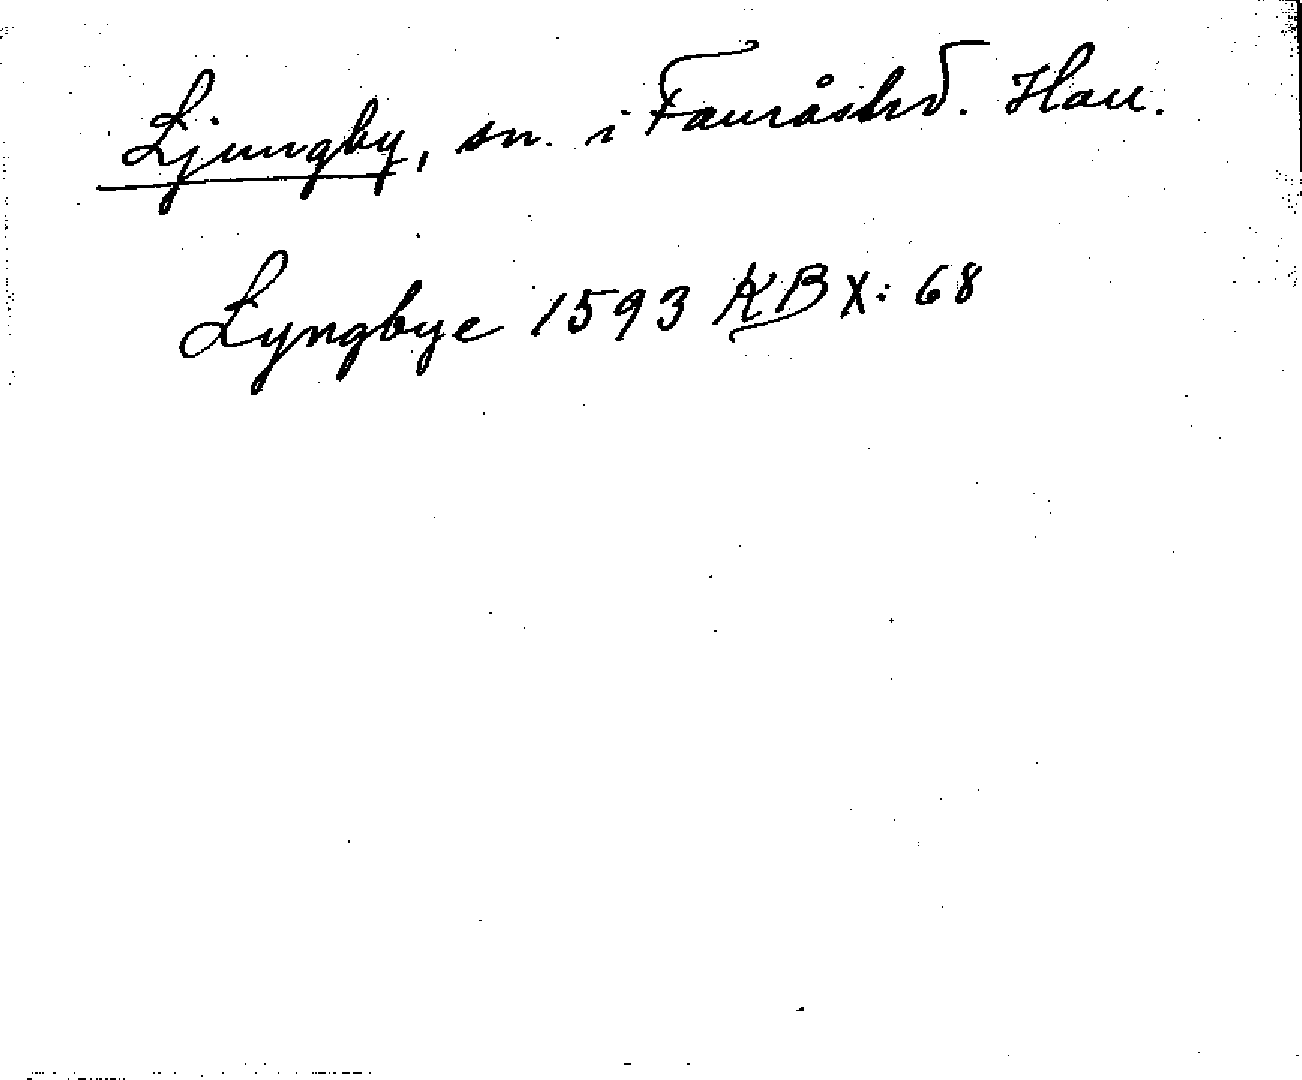 Ljungby, sn. i Fauråshd. Hall.
Lyngbye 1593 KB X: 68